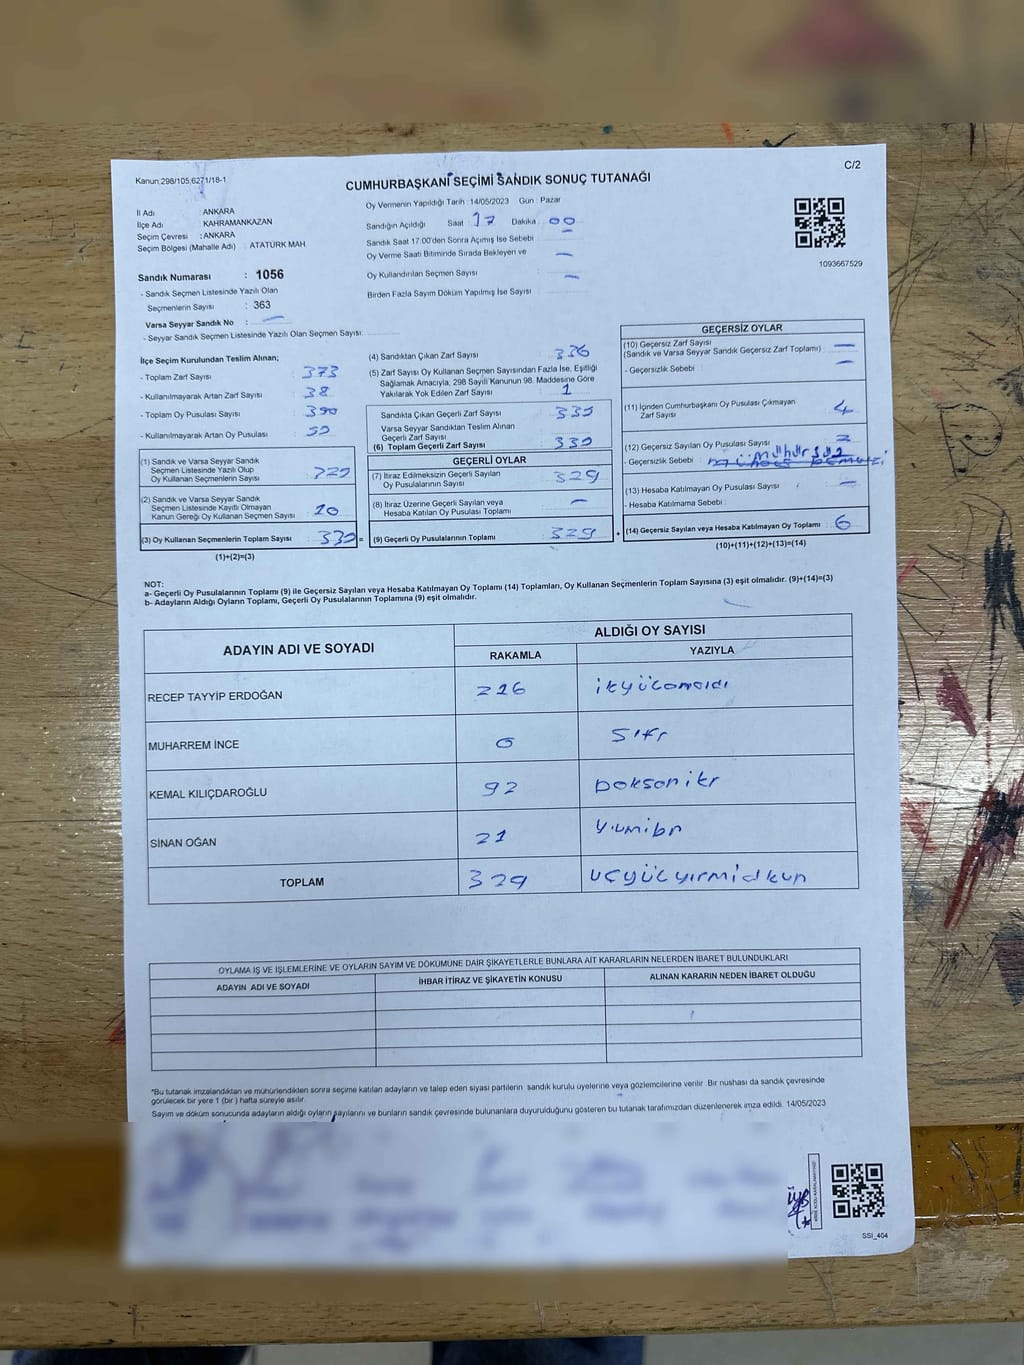 C/2
Kanun.298/105,6271/18-1
CUMHURBAŞKANI SEÇİMİ SANDIK SONUÇ TUTANAĞI
Oy Vermenin Yapıldığı Tarih : 14/05/2023 Gün : Pazar
İl Adı : ANKARA
İlçe Adı KAHRAMANKAZAN
Seçim Çevresi : ANKARA
Seçim Bölgesi (Mahalle Adı) : ATATÜRK MAH.
Sandık Numarası : 1056
- Sandık Seçmen Listesinde Yazılı Olan
Seçmenlerin Sayısı : 363
Varsa Seyyar Sandık No : —
- Seyyar Sandık Seçmen Listesinde Yazılı Olan Seçmen Sayısı:
Sandığın Açıldığı Saat 17 Dakika 00
Sandık Saat 17.00'den Sonra Açımış İse Sebebi —
Oy Verme Saati Bitiminde Sırada Bekleyen ve —
Oy Kullandırılan Seçmen Sayısı —
Birden Fazla Sayım Döküm Yapılmış İse Sayısı
1093667529
İlçe Seçim Kurulundan Teslim Alınan;
- Toplam Zarf Sayısı : 373
- Kullanılmayarak Artan Zarf Sayısı : 38
- Toplam Oy Pusulası Sayısı :
- Kullanılmayarak Artan Oy Pusulası :
(1) Sandık ve Varsa Seyyar Sandık
Seçmen Listesinde Yazılı Olup
Oy Kullanan Seçmenlerin Sayısı
(2) Sandık ve Varsa Seyyar Sandık
Seçmen Listesinde Kayıtlı Olmayan
Kanun Gereği Oy Kullanan Seçmen Sayısı : 10
(3) Oy Kullanan Seçmenlerin Toplam Sayısı : =
(1)+(2)=(3)
(4) Sandıktan Çıkan Zarf Sayısı 336
(5) Zarf Sayısı Oy Kullanan Seçmen Sayısından Fazla İse, Eşitliği
Sağlamak Amacıyla, 298 Sayılı Kanunun 98. Maddesine Göre
Yakılarak Yok Edilen Zarf Sayısı 1
Sandıkta Çıkan Geçerli Zarf Sayısı 335
Varsa Seyyar Sandıktan Teslim Alınan
Geçerli Zarf Sayısı
(6) Toplam Geçerli Zarf Sayısı 335
GEÇERLİ OYLAR
(7) İtiraz Edilmeksizin Geçerli Sayılan
Oy Pusulalarının Sayısı : 329
(8) İtiraz Üzerine Geçerli Sayılan veya
Hesaba Katılan Oy Pusulası Toplamı : —
(9) Geçerli Oy Pusulalarının Toplamı : 329 +
GEÇERSİZ OYLAR
(10) Geçersiz Zarf Sayısı —
(Sandık ve Varsa Seyyar Sandık Geçersiz Zarf Toplamı)
- Geçersizlik Sebebi : —
(11) İçinden Cumhurbaşkanı Oy Pusulası Çıkmayan
Zarf Sayısı 4
(12) Geçersiz Sayılan Oy Pusulası Sayısı : 2
- Geçersizlik Sebebi : mühürsüz
(13) Hesaba Katılmayan Oy Pusulası Sayısı : —
- Hesaba Katılmama Sebebi :
(14) Geçersiz Sayılan veya Hesaba Katılmayan Oy Toplamı : 6
(10)+(11)+(12)+(13)=(14)
NOT:
a- Geçerli Oy Pusulalarının Toplamı (9) ile Geçersiz Sayılan veya Hesaba Katılmayan Oy Toplamı (14) Toplamları, Oy Kullanan Seçmenlerin Toplam Sayısına (3) eşit olmalıdır. (9)+(14)=(3)
b- Adayların Aldığı Oyların Toplamı, Geçerli Oy Pusulalarının Toplamına (9) eşit olmalıdır.
ADAYIN ADI VE SOYADI
ALDIĞI OY SAYISI
RAKAMLA YAZIYLA
RECEP TAYYİP ERDOĞAN 216
MUHARREM İNCE 0 Sıfr
KEMAL KILIÇDAROĞLU 92 Doksan iki
SİNAN OĞAN 21
TOPLAM 329
OYLAMA İŞ VE İŞLEMLERİNE VE OYLARIN SAYIM VE DÖKÜMÜNE DAİR ŞİKAYETLERLE BUNLARA AİT KARARLARIN NELERDEN İBARET BULUNDUKLARI
ADAYIN ADI VE SOYADI İHBAR İTİRAZ VE ŞİKAYETİN KONUSU ALINAN KARARIN NEDEN İBARET OLDUĞU
*Bu tutanak imzalandıktan ve mühürlendikten sonra seçime katılan adayların ve talep eden siyasi partilerin sandık kurulu üyelerine veya gözlemcilerine verilir. Bir nüshası da sandık çevresinde
görülecek bir yere 1 (bir) hafta süreyle asılır.
Sayım ve döküm sonucunda adayların aldığı oyların sayılarını ve bunların sandık çevresinde bulunanlara duyurulduğunu gösteren bu tutanak tarafımızdan düzenlenerek imza edildi. 14/05/2023
SSI_404